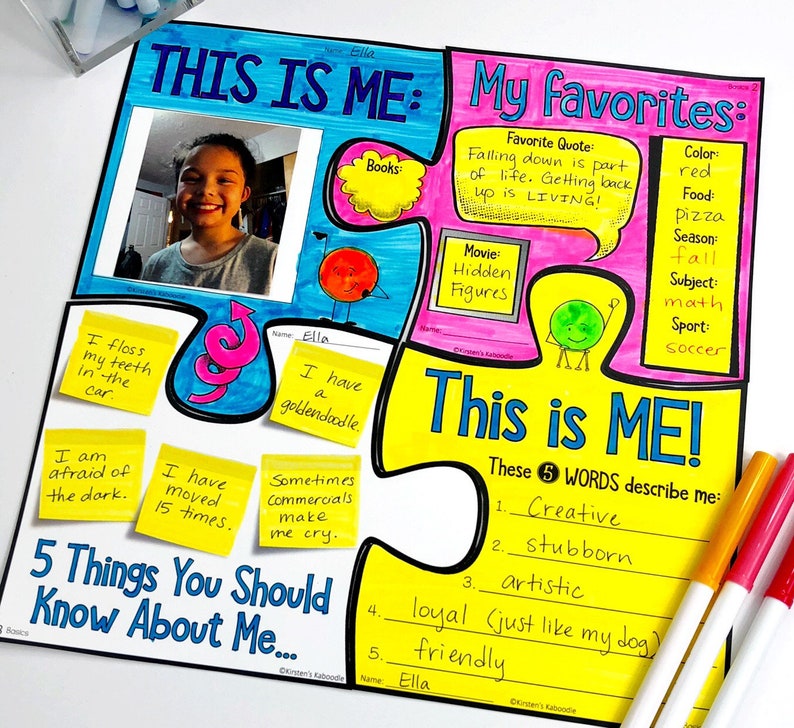 Name: Ella
THIS IS ME:
©Kirsten's Kaboodle
Basics 2
My favorites:
Books:
Favorite Quote:
Falling down is part
of life. Getting back
up is LIVING!
Movie:
Hidden
Figures
Color:
red
Food:
pizza
Season:
fall
Subject:
math
Sport:
soccer
Name:
©Kirsten's Kaboodle
Name: Ella
I floss
my teeth
in the
car.
I have
a
goldendoodle.
I am
afraid of
the dark.
I have
moved
15 times.
Sometimes
commercials
make
me cry.
5 Things You Should
Know About Me...
3 Basics
©Kirsten's Kaboodle
This is ME!
These 5 WORDS describe me:
1. Creative
2. stubborn
3. artistic
4. loyal (just like my dog)
5. friendly
Name: Ella
©Kirsten's Kaboodle